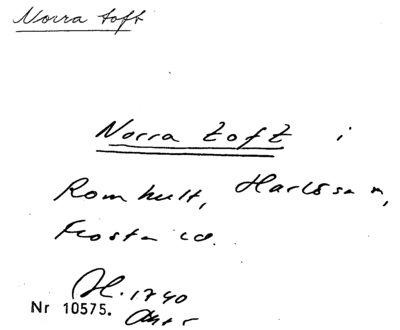 Norra toft
Norra toft i
Romhult, Harlösa sn,
Frosta hd.
H. 1740
Nr 10575.